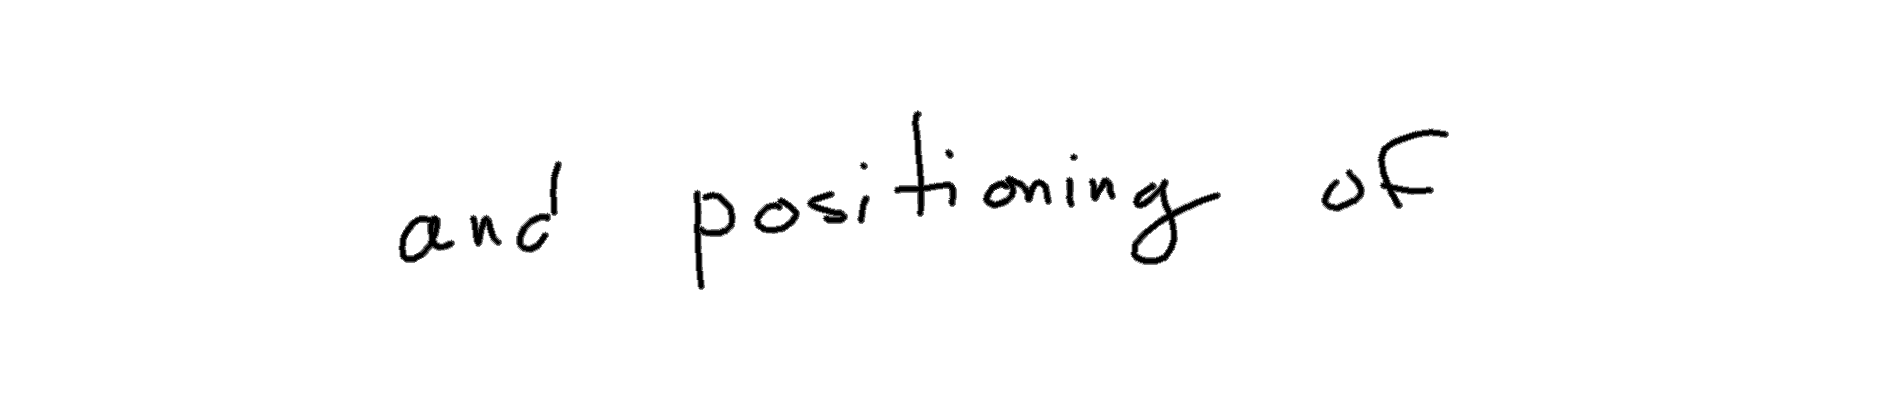 and positioning of